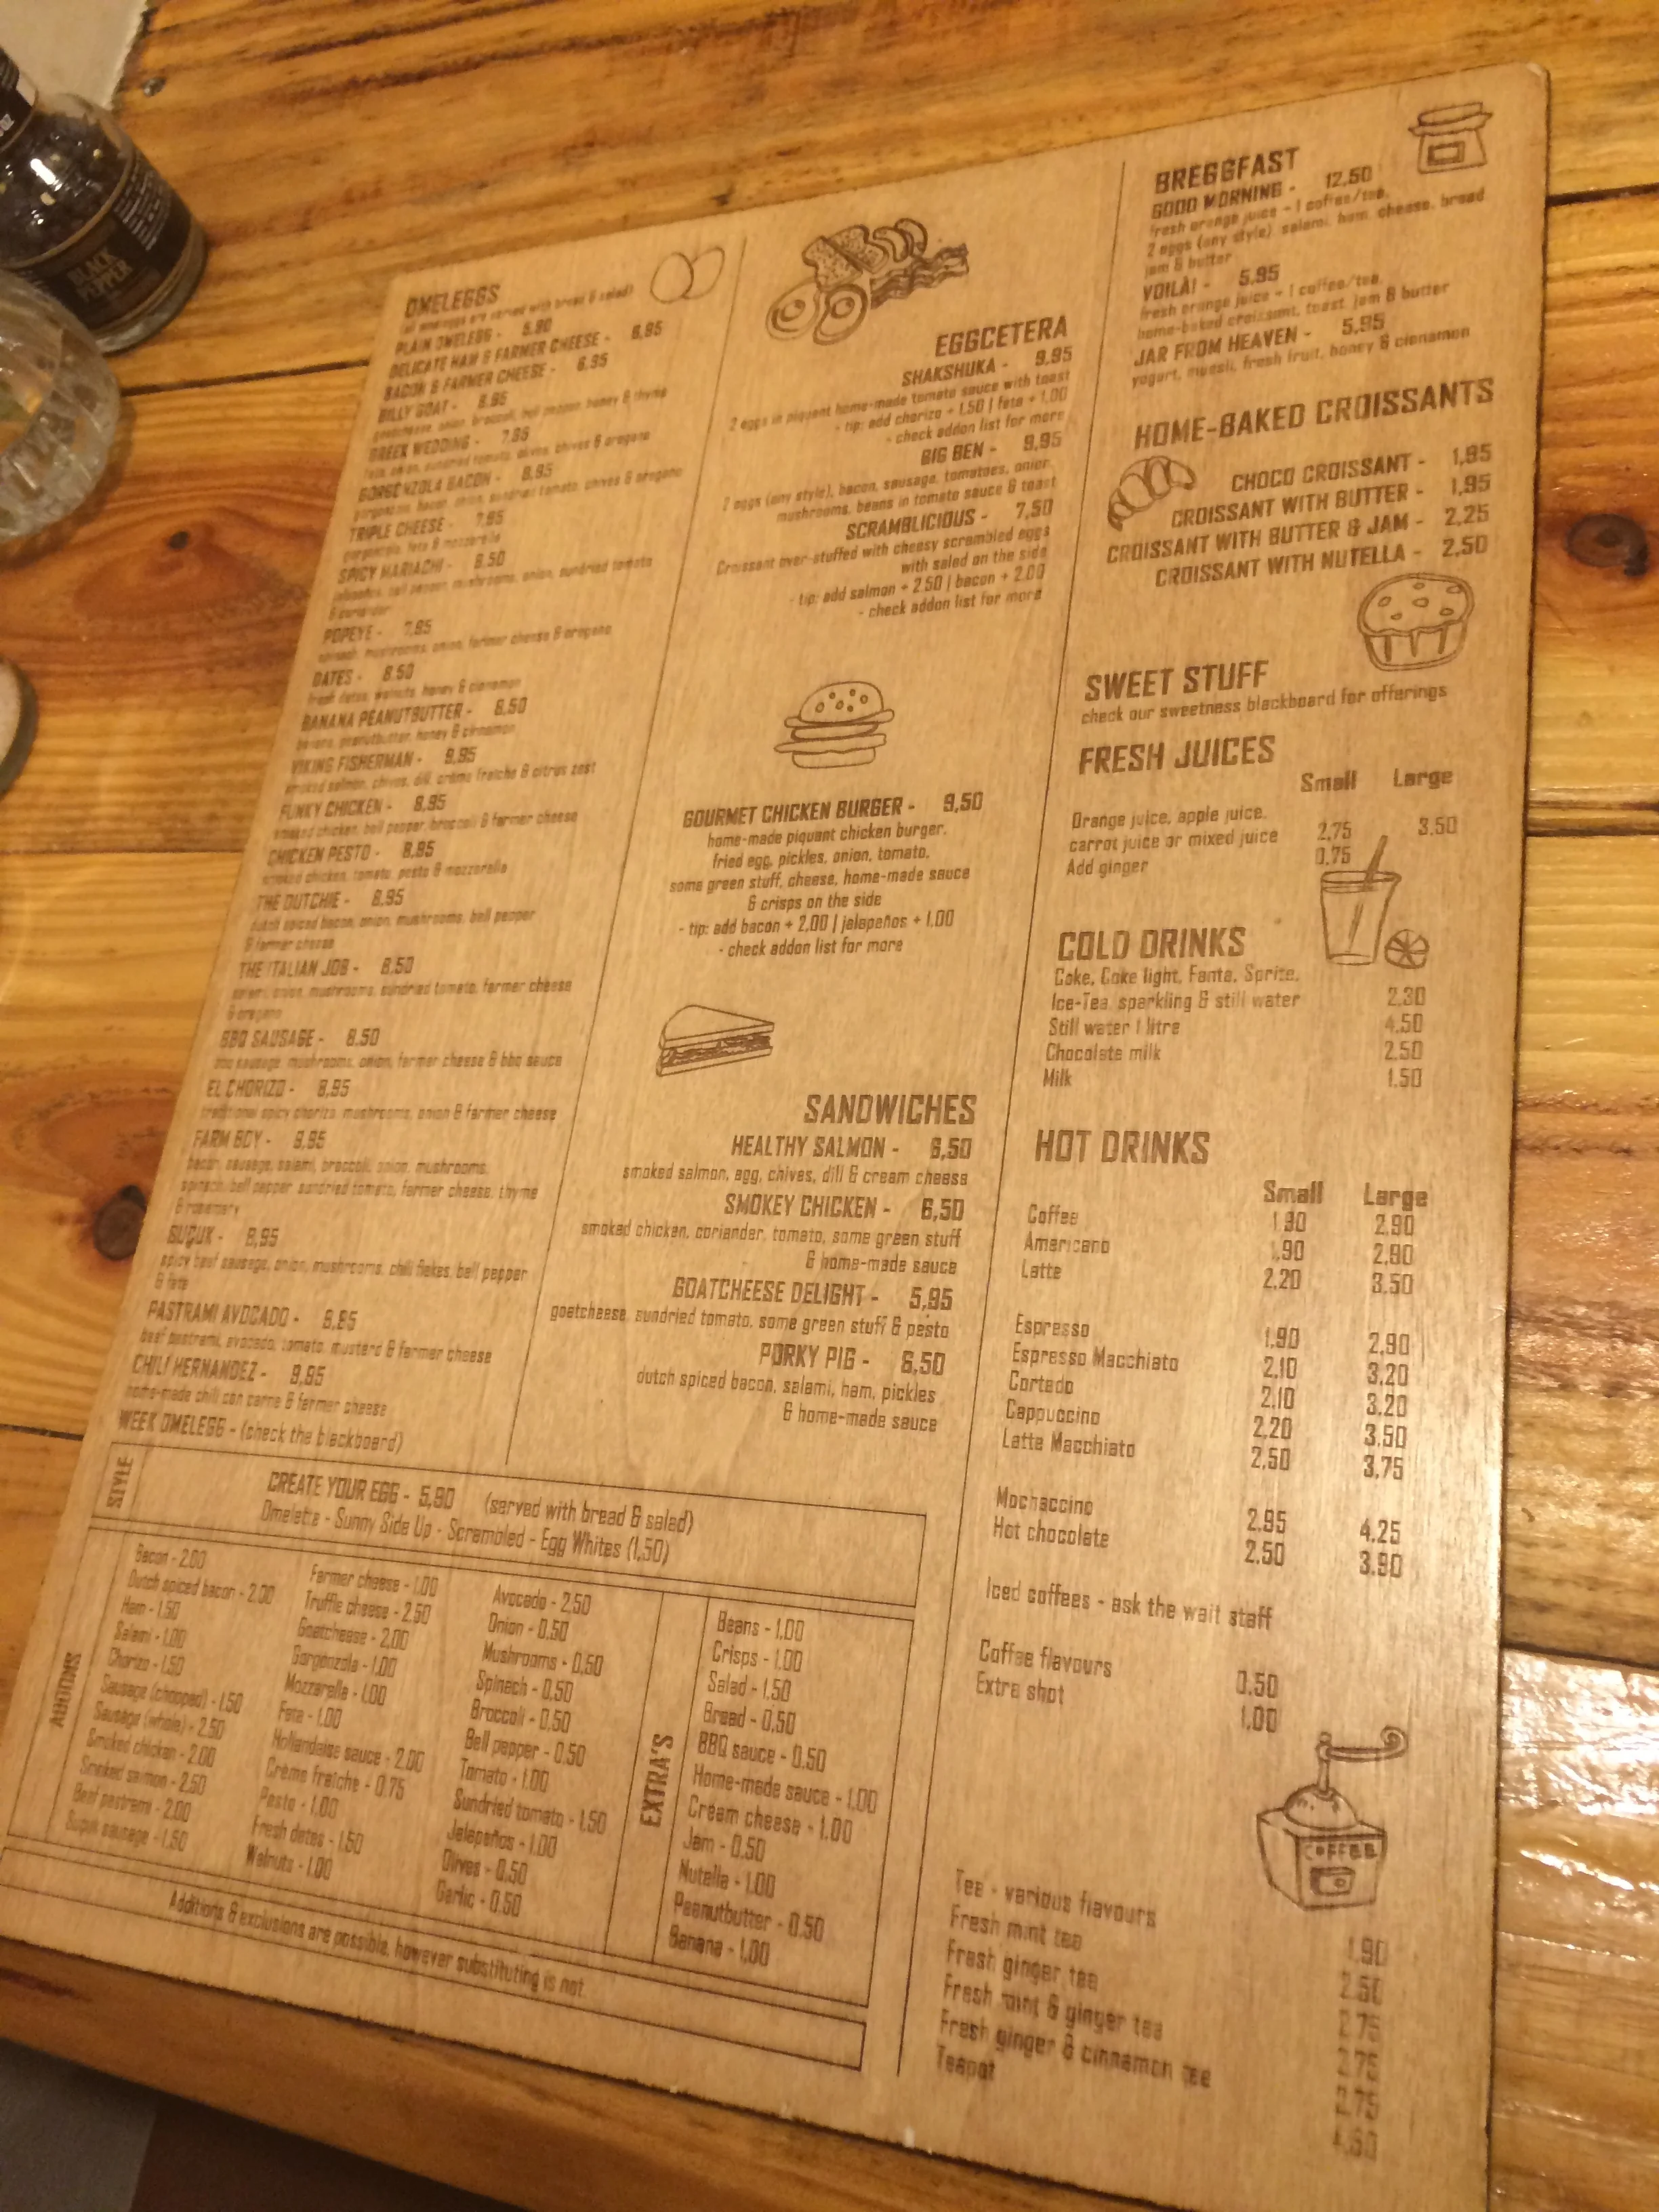 BLACK
PEPPER
OMELEGGS
(all omeleggs are served with bread & salad)
PLAIN OMELEGG - 5.90
DELICATE HAM & FARMER CHEESE - 6,95
BACON & FARMER CHEESE - 6.95
BILLY GOAT - 8.95
goatcheese, onion, broccoli, bell pepper, honey & thyme
GREEK WEDDING - 7.95
feta, onion, sundried tomato, olives, chives & oregano
GORGONZOLA BACON - 8.95
gorgonzola, bacon, onion, sundried tomato, chives & oregano
TRIPLE CHEESE - 7.95
gorgonzola, feta & mozzarella
SPICY MARIACHI - 8.50
jalapeños, bell pepper, mushrooms, onion, sundried tomato
& coriander
POPEYE - 7.95
spinach, mushrooms, onion, farmer cheese & oregano
DATES - 8.50
fresh dates, walnuts, honey & cinnamon
BANANA PEANUTBUTTER - 6,50
banana, peanutbutter, honey & cinnamon
VIKING FISHERMAN - 9,95
smoked salmon, chives, dill, crème fraiche & citrus zest
FUNKY CHICKEN - 8,95
smoked chicken, bell pepper, broccoli & farmer cheese
CHICKEN PESTO - 8,95
smoked chicken, tomato, pesto & mozzarella
THE DUTCHIE - 8,95
dutch spiced bacon, onion, mushrooms, bell pepper
& farmer cheese
THE ITALIAN JOB - 8,50
salami, onion, mushrooms, sundried tomato, farmer cheese
& oregano
BBQ SAUSAGE - 8.50
bbq sausage, mushrooms, onion, farmer cheese & bbq sauce
EL CHORIZO - 8,95
traditional spicy chorizo, mushrooms, onion & farmer cheese
FARM BOY - 9,95
bacon, sausage, salami, broccoli, onion, mushrooms,
spinach, bell pepper, sundried tomato, farmer cheese, thyme
& rosemary
SUÇUK - 8,95
spicy beef sausage, onion, mushrooms, chili flakes, bell pepper
& feta
PASTRAMI AVOCADO - 9,95
beef pastrami, avocado, tomato, mustard & farmer cheese
CHILI HERNANDEZ - 9,95
home-made chili con carne & farmer cheese
WEEK OMELEGG - (check the blackboard)
EGGCETERA
SHAKSHUKA - 9.95
2 eggs in piquant home-made tomato sauce with toast
- tip: add chorizo + 1.50 | feta + 1.00
- check addon list for more
BIG BEN - 9,95
2 eggs (any style), bacon, sausage, tomatoes, onion,
mushrooms, beans in tomato sauce & toast
SCRAMBLICIOUS - 7,50
Croissant over-stuffed with cheesy scrambled eggs
with salad on the side
- tip: add salmon + 2.50 | bacon + 2.00
- check addon list for more
GOURMET CHICKEN BURGER - 9,50
home-made piquant chicken burger,
fried egg, pickles, onion, tomato,
some green stuff, cheese, home-made sauce
& crisps on the side
- tip: add bacon + 2,00 | jelapeños + 1.00
- check addon list for more
SANDWICHES
HEALTHY SALMON - 6,50
smoked salmon, egg, chives, dill & cream cheese
SMOKEY CHICKEN - 6,50
smoked chicken, coriander, tomato, some green stuff
& home-made sauce
GOATCHEESE DELIGHT - 5,95
goatcheese, sundried tomato, some green stuff & pesto
PORKY PIG - 6,50
dutch spiced bacon, salami, ham, pickles
& home-made sauce
BREGGFAST
GOOD MORNING - 12,50
fresh orange juice - 1 coffee/tea,
2 eggs (any style), salami, ham, cheese, bread
jam & butter
VOILÀ! - 5.95
fresh orange juice - 1 coffee/tea,
home-baked croissant, toast, jam & butter
JAR FROM HEAVEN - 5,95
yogurt, muesli, fresh fruit, honey & cinnamon
HOME-BAKED CROISSANTS
CHOCO CROISSANT - 1,95
CROISSANT WITH BUTTER - 1,95
CROISSANT WITH BUTTER & JAM - 2,25
CROISSANT WITH NUTELLA - 2,50
SWEET STUFF
check our sweetness blackboard for offerings
FRESH JUICES
Small Large
Orange juice, apple juice,
carrot juice or mixed juice 2,75 3.50
Add ginger 0.75
COLD DRINKS
Coke, Coke light, Fanta, Sprite,
Ice-Tea, sparkling & still water 2,30
Still water 1 litre 4.50
Chocolate milk 2.50
Milk 1.50
HOT DRINKS
Small Large
Coffee 1.90 2,90
Americano 1.90 2,90
Latte 2,20 3,50
Espresso 1.90 2,90
Espresso Macchiato 2,10 3.20
Cortado 2,10 3,20
Cappuccino 2,20 3,50
Latte Macchiato 2,50 3,75
Mochaccino 2.95 4.25
Hot chocolate 2.50 3,90
Iced coffees - ask the wait staff
Coffee flavours 0.50
Extra shot 1,00
COFFEE
Tea - various flavours 1.90
Fresh mint tea 2.50
Fresh ginger tea 2.75
Fresh mint & ginger tea 2.75
Fresh ginger & cinnamon tee 2.75
Teapot
STYLE
CREATE YOUR EGG - 5,90 (served with bread & salad)
Omelette - Sunny Side Up - Scrambled - Egg Whites (1,50)
ADDONS
Bacon - 2.00
Dutch spiced bacon - 2,00
Ham - 1.50
Salami - 1,00
Chorizo - 1,50
Sausage (chopped) - 1.50
Sausage (whole) - 2.50
Smoked chicken - 2.00
Smoked salmon - 2.50
Beef pastrami - 2.00
Suçuk sausage - 1.50
Farmer cheese - 1.00
Truffle cheese - 2.50
Goatcheese - 2,00
Gorgonzola - 1.00
Mozzarella - 1,00
Feta - 1.00
Hollandaise sauce - 2,00
Crème fraiche - 0.75
Pesto - 1.00
Fresh dates - 1.50
Walnuts - 1.00
Avocado - 2,50
Onion - 0,50
Mushrooms - 0,50
Spinach - 0,50
Broccoli - 0,50
Bell pepper - 0.50
Tomato - 1.00
Sundried tomato - 1,50
Jelapeños - 1.00
Olives - 0.50
Garlic - 0.50
EXTRA'S
Beans - 1.00
Crisps - 1.00
Salad - 1,50
Bread - 0,50
BBQ sauce - 0.50
Home-made sauce - 1.00
Cream cheese - 1.00
Jam - 0.50
Nutella - 1.00
Peanutbutter - 0.50
Banana - 1.00
Additions & exclusions are possible, however substituting is not.